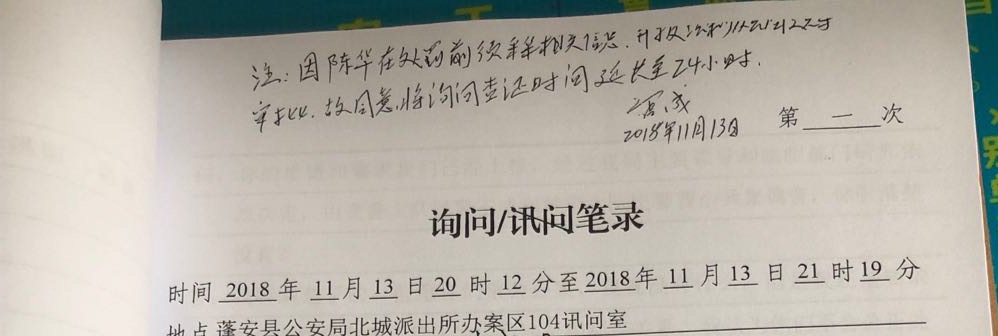 注:因陈华在处罚前须采集相关信息,并报
审批.故同意将询问查证时间延长至24小时.
2018年11月13日 第 一 次
询问/讯问笔录
时间 2018 年 11 月 13 日 20 时 12 分至 2018 年 11 月 13 日 21 时 19 分
地点 蓬安县公安局北城派出所办案区104讯问室